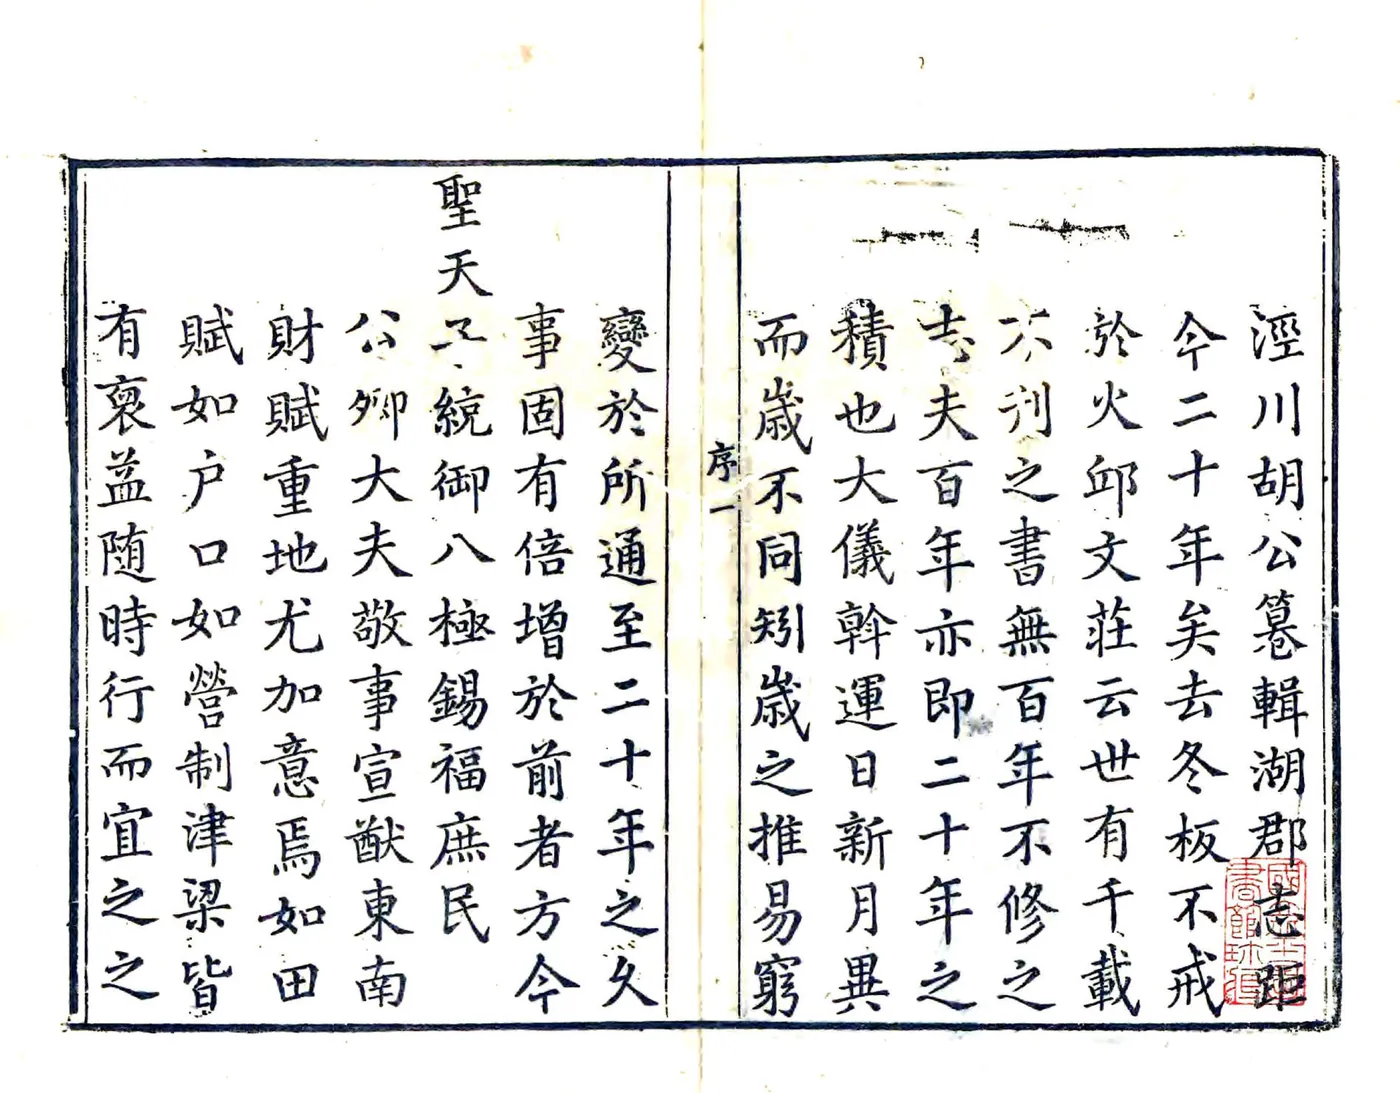 涇川胡公纂輯湖郡志距
今二十年矣去冬板不戒
於火邱文莊云世有千載
不刋之書無百年不修之
志夫百年亦即二十年之
積也大儀斡運日新月異
而歲不同矧歲之推易窮
序一
變於所通至二十年之久
事固有倍增於前者方今
聖天子統御八極錫福庶民
公卿大夫敬事宣猷東南
財賦重地尤加意焉如田
賦如户口如營制津梁皆
有裒益随時行而宜之之